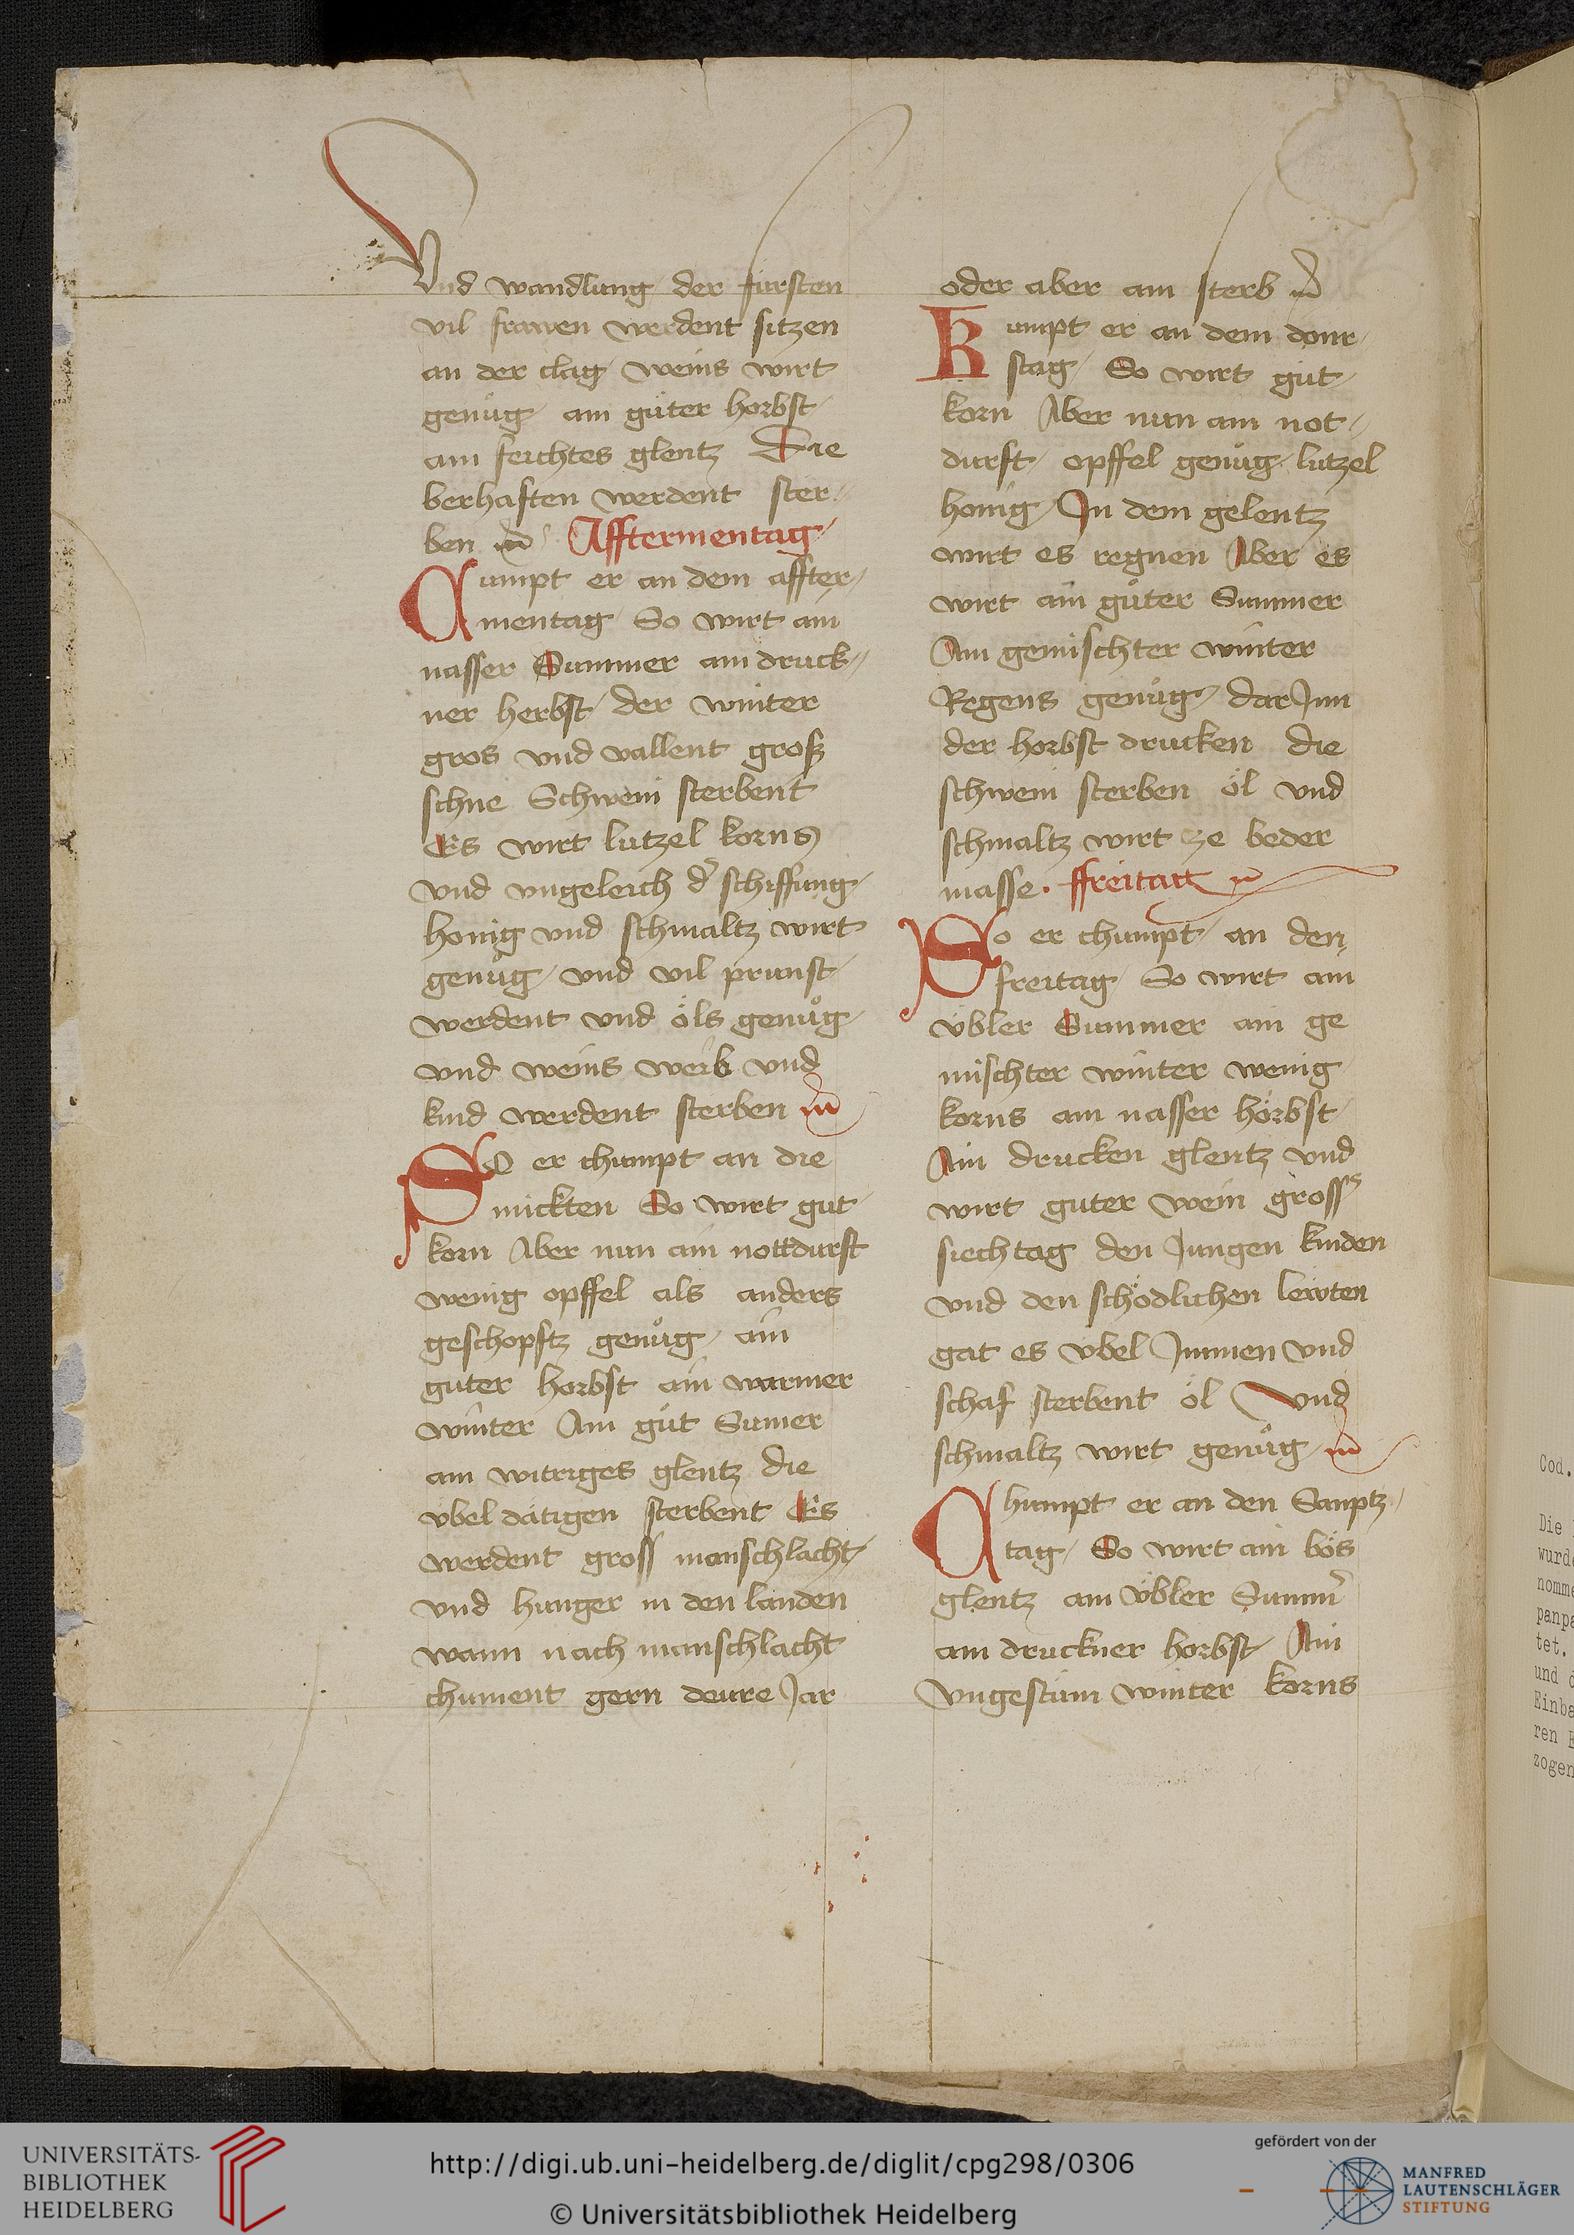 Vnd wandlung der fürsten
vil frawen werdent sitzen
an der clag weins wirt
genüg ain güter horbst
ain feichtes glentz Die
berhaften werdent ster
ben Afftermentag
Cumpt er an dem affter
mentag So wirt ain
nasser Summer ain druck
ner herbst der winter
gros vnd vallent grosz
schne Schwein sterbent
Es wirt lutzel korns
vnd vngeleich d schiffung
honig vnd schmaltz wirt
genůg vnd vil prunst
werdent vnd öls genůg
vnd weins weib vnd
kind werdent sterben
So er chumpt an die
mickten So wirt gut
korn Aber nun ain nottdurft
wenig opffel als anders
geschopftz genůg ain
guter horbst ain warmer
winter Ain güt Sumer
ain witriges glentz die
vbel dätigen sterbent Es
werdent gross manschlacht
vnd hunger in den landen
wann nach manschlacht
chument gern deure Jar
oder aber ain sterb
Kumpt er an dem donr
stag So wirt güt
korn Aber nun ain not
durft opffel genüg lutzel
honig In dem gelentz
wirt es regnen Aber es
wirt ain gůter Summer
Ain gemischter winter
Regens genůg darJnn
der horbst drucken die
schwein sterben öl vnd
schmaltz wirt ze beder
masse. ffreitag
So er chumpt an den
freitag So wirt ain
übler Summer ain ge
mischter winter wenig
korns ain nasser hörbst
Ain drucken glentz vnd
wirt guter wein gross
siechtag den Jungen kinden
vnd den schödlichen lewten
gat es vbel Immen vnd
schaf sterbent öl Vnd
schmaltz wirt genůg
Chumpt er an den Sanptz
tag So wirt ain bös
glentz ain übler Summ
ain druckner horbst Ain
vngestüm winter korns
Cod.
Die
wurde
nomme
panpa
tet.
und d
Einba
ren
zogen
UNIVERSITÄTS-
BIBLIOTHEK
HEIDELBERG
http://digi.ub.uni-heidelberg.de/diglit/cpg298/0306
© Universitätsbibliothek Heidelberg
gefördert von der
MANFRED
LAUTENSCHLÄGER
STIFTUNG